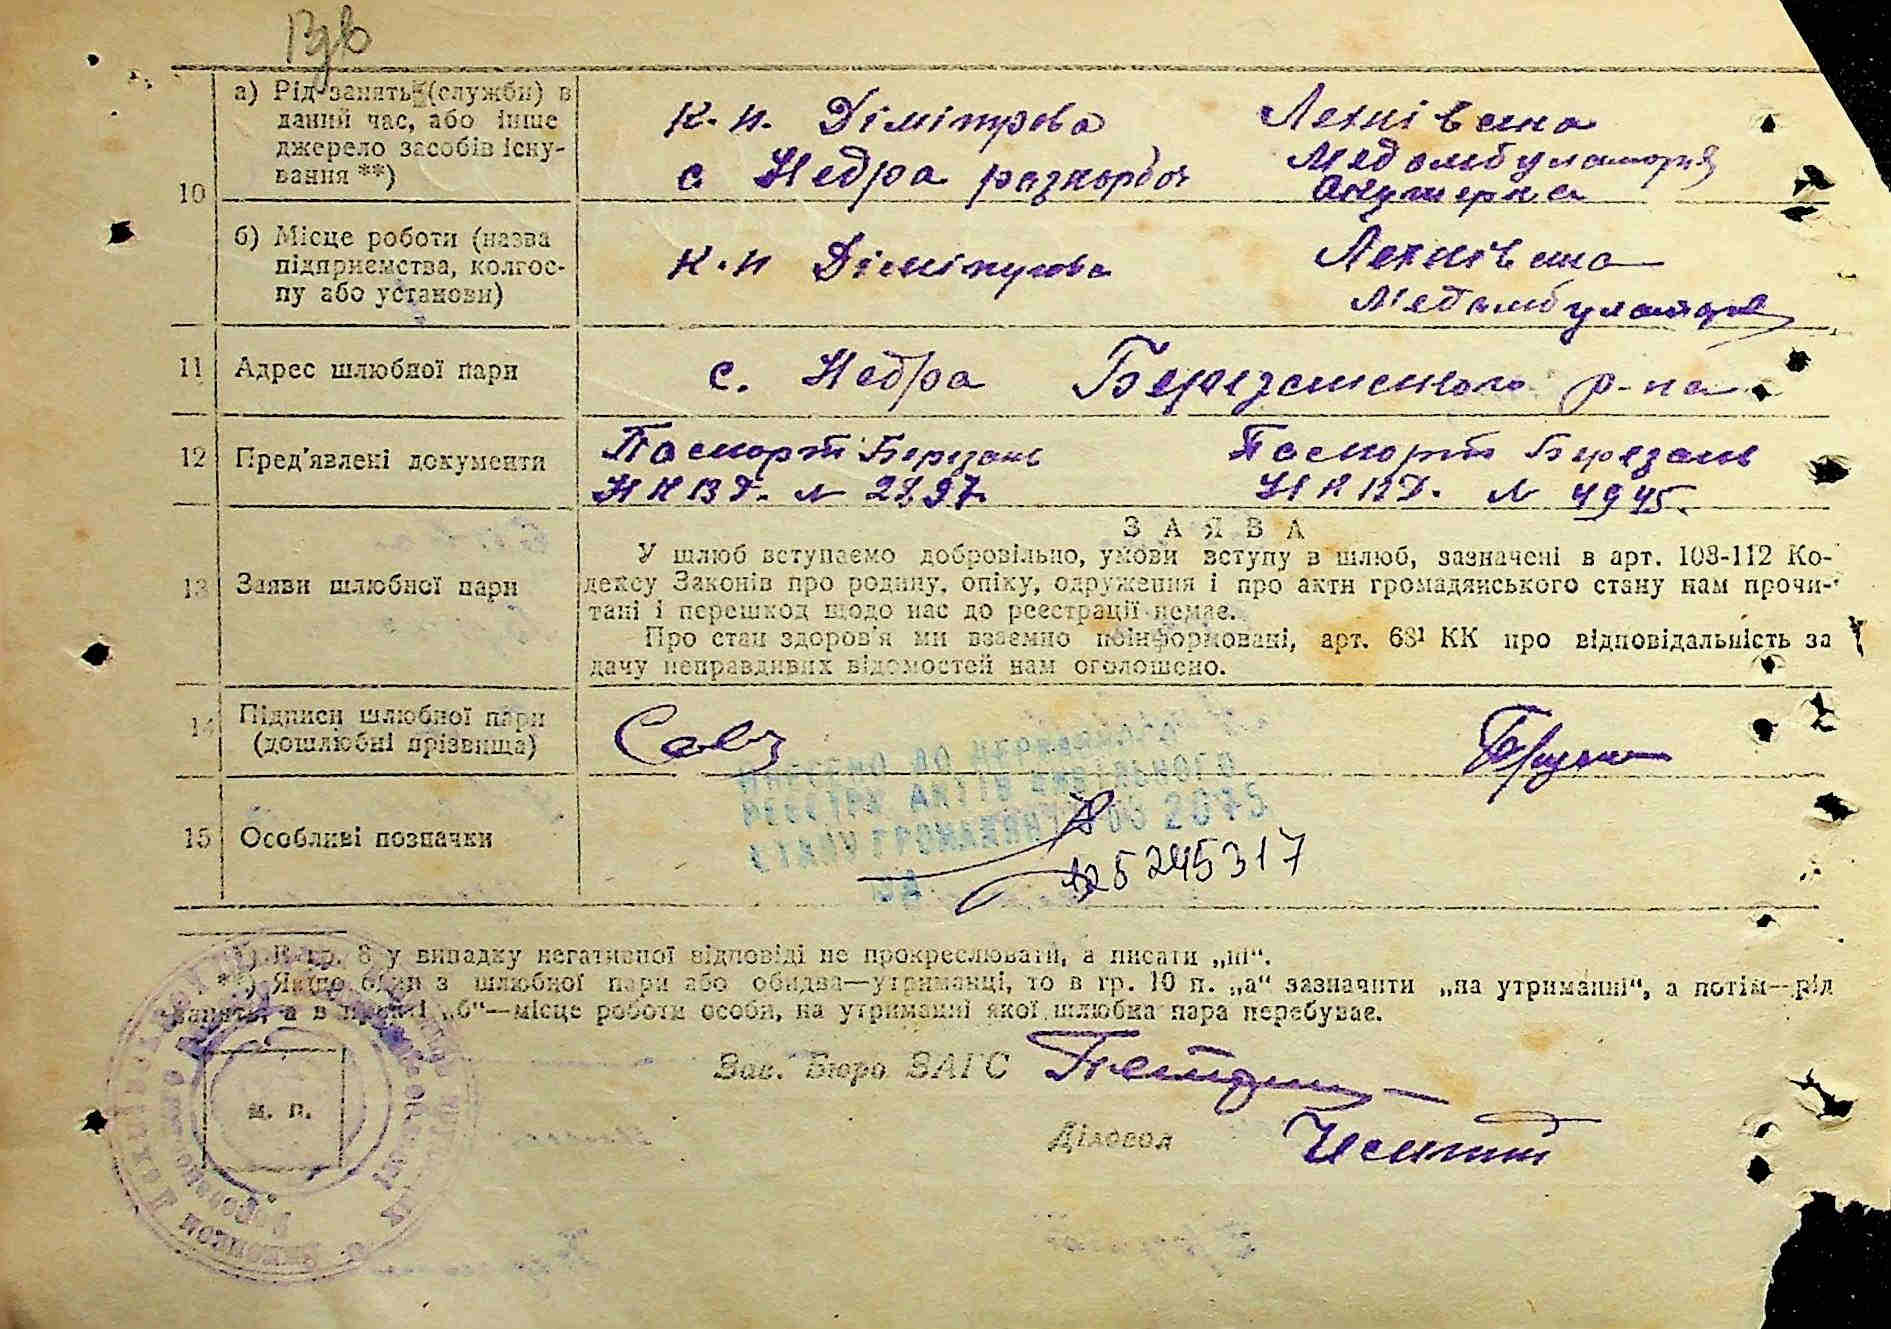 а) Рід занять (служби) в
даний час, або інше
джерело засобів існу-
вання **)
10
к.п. Дімітрова
с Недра
Лехнівська
Медамбулаторія
Акушерка
б) Місце роботи (назва
підприємства, колгос-
пу або установи)
к.п Дімітрова
Лехнівська
Медамбулаторія
11 Адрес шлюбної пари
с. Недра Березанського р-на
12 Пред'явлені документи
Паспорт Березань
НКВД. № 2897.
Паспорт Березань
НКВД. № 4945.
ЗАЯВА
13 Заяви шлюбної пари
У шлюб вступаємо добровільно, умови вступу в шлюб, зазначені в арт. 108-112 Ко-
дексу Законів про родину, опіку, одруження і про акти громадянського стану нам прочи-
тані і перешкод щодо нас до реєстрації немає.
Про стан здоров'я ми взаємно поінформовані, арт. 68¹ КК про відповідальність за
дачу неправдивих відомостей нам оголошено.
14 Підписи шлюбної пари
(дошлюбні прізвища)
ВНЕСЕНО ДО ДЕРЖАВНОГО
РЕЄСТРУ АКТІВ ЦИВІЛЬНОГО
СТАНУ ГРОМАДЯН
15 Особливі позначки
за
*) В гр. 8 у випадку негативної відповіді не прокреслювати, а писати „ні“.
**) Якщо один з шлюбної пари або обидва—утриманці, то в гр. 10 п. „а“ зазначити „на утриманні“, а потім—рід
занять, а в пункті „б“—місце роботи особи, на утриманні якої шлюбна пара перебуває.
Зав. Бюро ЗАГС
м. п.
Діловод